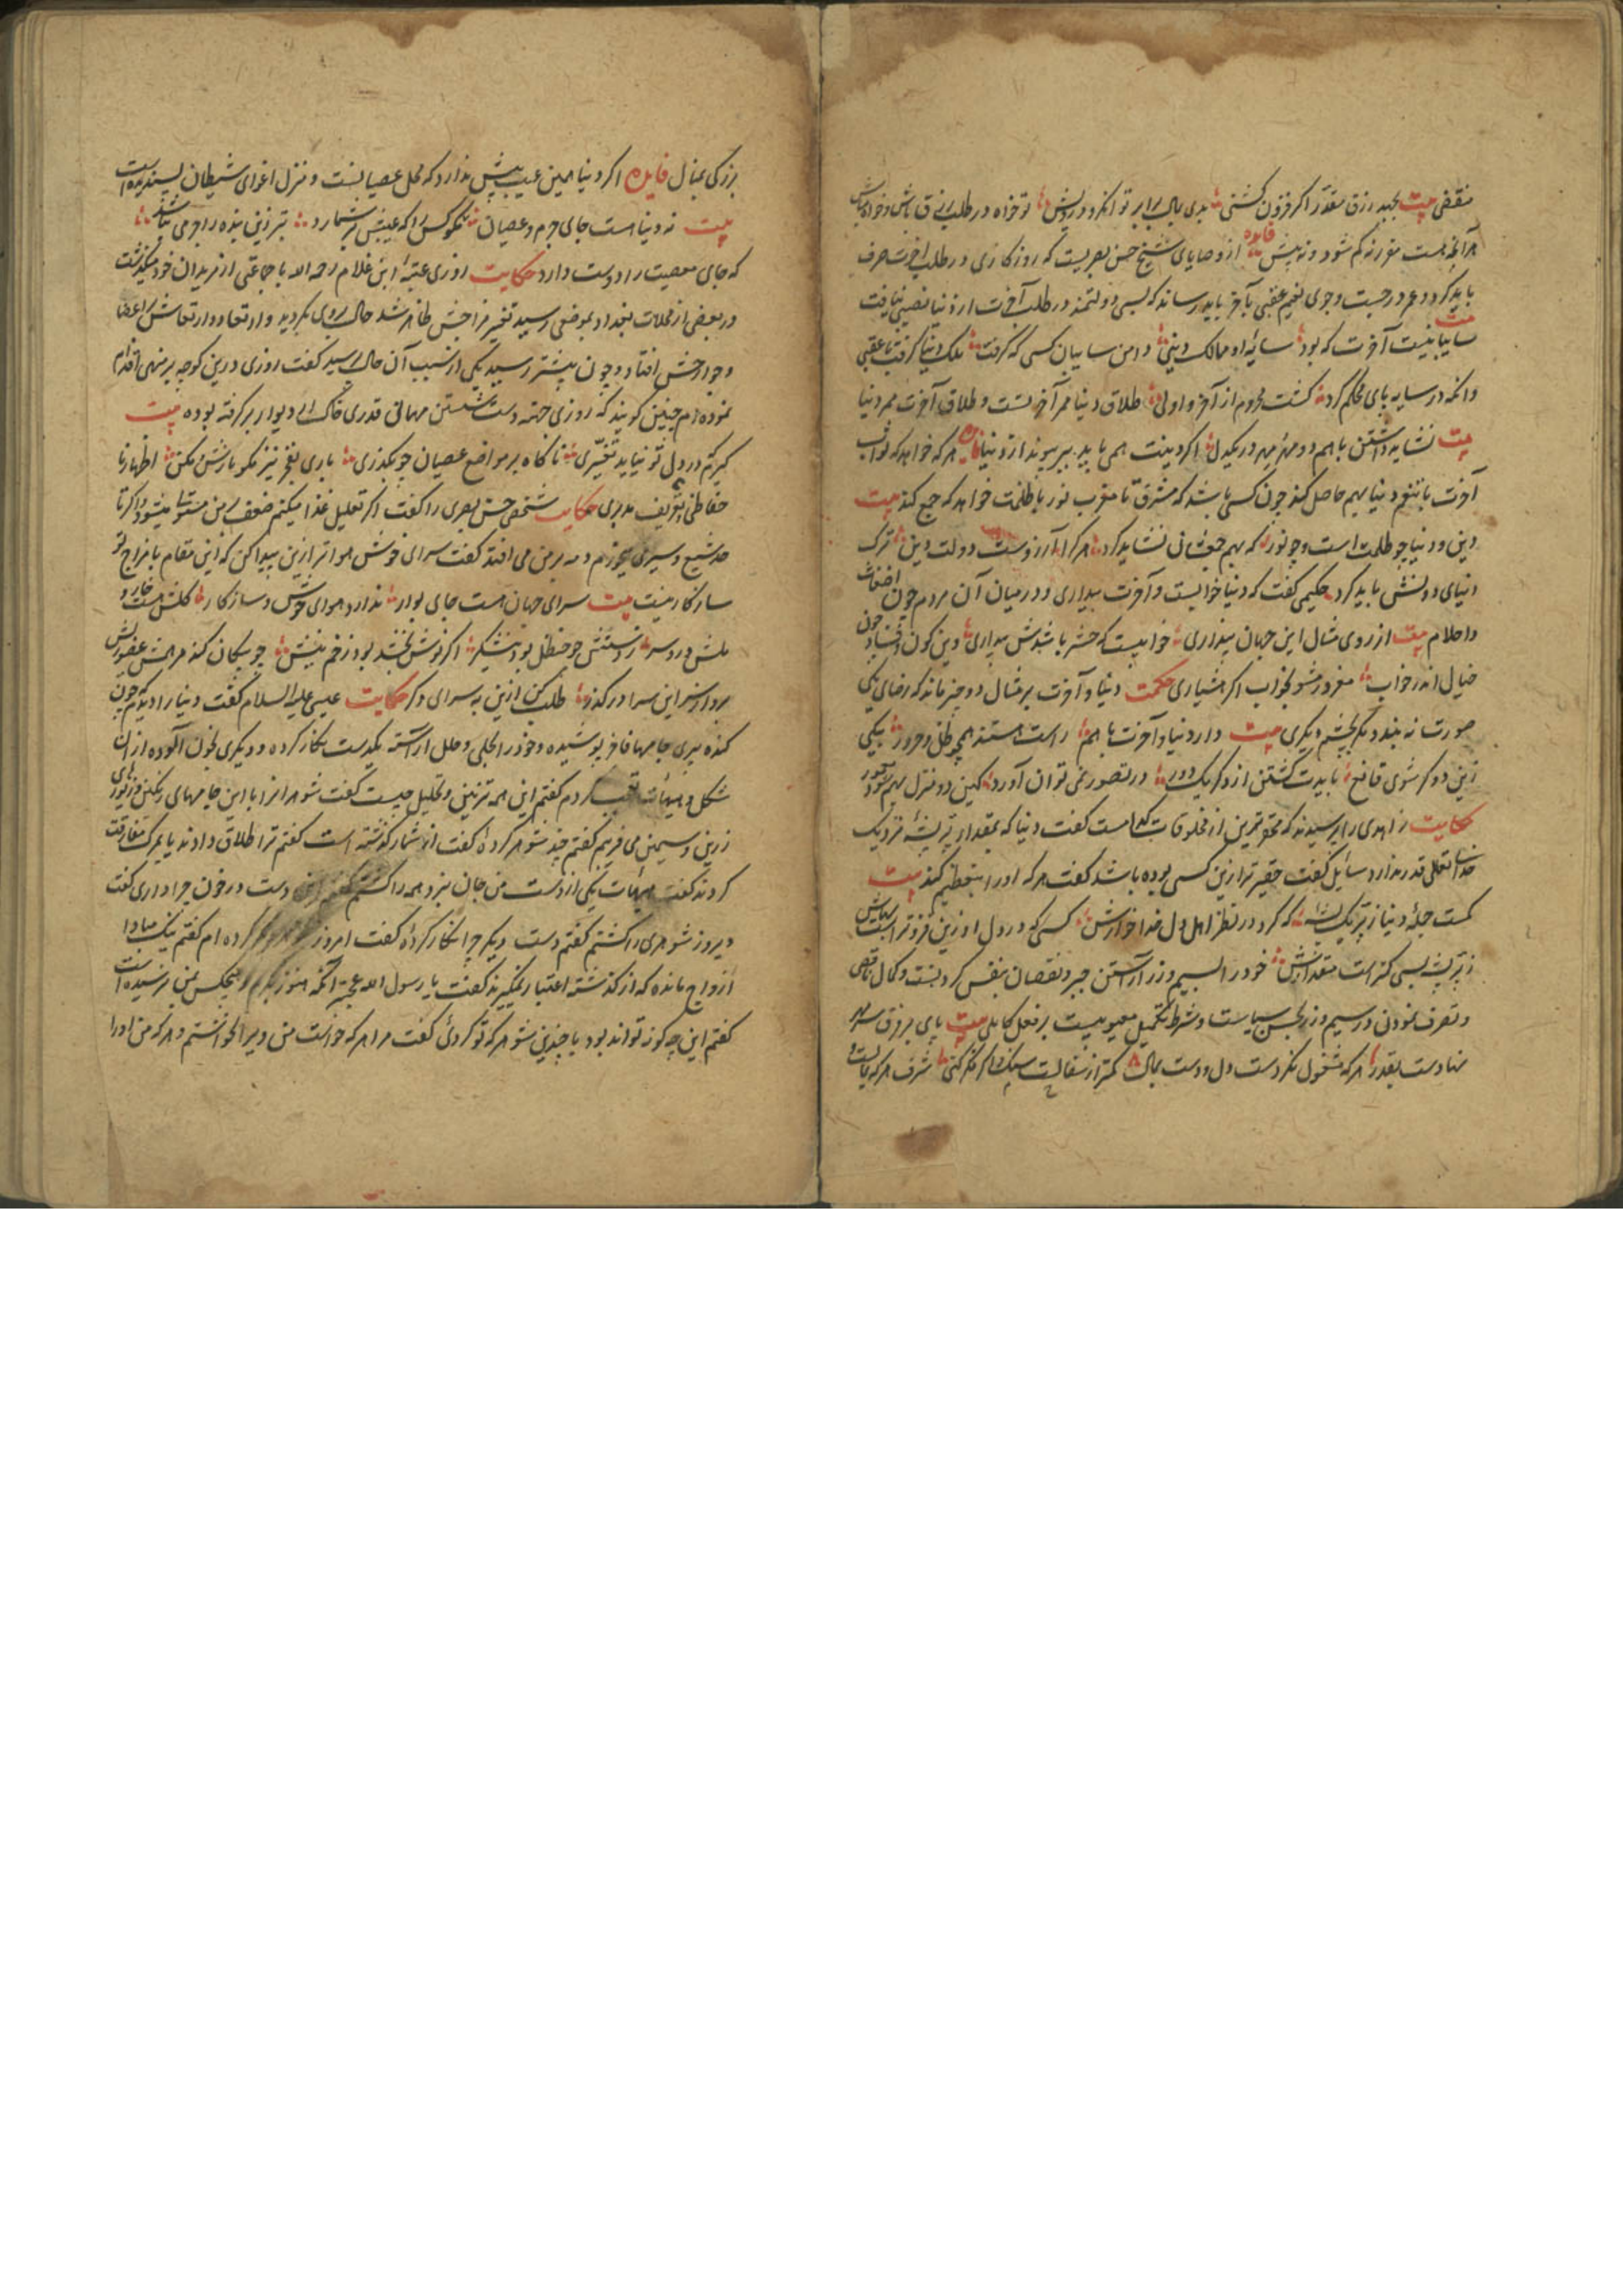 منقضی بیت بجهد رزق مقدر اگر فزون گشتی بدی بمال برابر توانگر و درویش تو خواه در طلب رزق باش و خواه مباش
هر آنچه هست مقرر نه کم شود و نه بیش فایده از وصایای شیخ حسن بصریست که روزگاری در طلب آخرت صرف
باید کرد و عمر در جست و جوی نعیم عقبی بآخر باید رساند که بسی دولتمند در طلب آخرت از دنیا نصیبی یافت
بیت سایبانیست آخرت که بود سایه او ممالک دنیی دامن سایبان کسی که گرفت ملک دنیا گرفت با عقبی
وانکه در سایه پای محکم کرد گشت محروم از آخر و اولی طلاق دنیا مهر آخرتست و طلاق آخرت مهر دنیا
بیت نشاید داشتن با هم دو مهر در یکدل اگر دینت همی باید ببر پیوند از دنیا فایده هر که خواهد که ثواب
آخرت با تنعم دنیا بهم حاصل کند چون کسی باشد که مشرق تا مغرب نور با ظلمت خواهد که جمع کند بیت
دین و دنیا چو ظلمت است و چو نور که بهم جمعشان نشاید کرد هر کرا آرزوست دولت دین ترک
دنیای دونش باید کرد حکیمی گفت که دنیا خوابست و آخرت بیداری و در میان آن مردم چون اضغاث
و احلام بیت از روی مثال این جهان پنداری خوابیست که حشر باشدش بیداری وین کون و فساد چون
خیال اندر خواب مغرور مشو بخواب اگر هشیاری حکمت دنیا و آخرت بر مثال دو چیز ماند که رضای یکی
صورت نه بندد مگر بخشم دیگری بیت دار دنیا و آخرت با هم راست هستند همچو ظل و حرور بیکی
زین دو گر شوی قانع بایدت گشتن از دگر یک دور در تصور نمی توان آورد کین دو منزل بهم شود
حکایت زاهدی را پرسیدند که محقرترین از مخلوقات کدامست گفت دنیا که بمقدار پر پشه نزدیک
خدای تعالی قدر ندارد سائل گفت حقیرتر ازین کسی بوده باشد گفت هر که او را تعظیم کند بیت
کمست جمله دنیا ز پر یک پشه که کرد در نظر اهل دل خدا خوارش کسی که در دل او زین فزونتر است
ز پر پشه بسی کمتر است مقدارش خود را بسیم و زر آراستن جبر و نقصان بنفس کردنست و کمال ناقص
و تصرف نمودن در سیم و زر بحسن سیاست و شرط تکمیل معیوبیست بر فعل کاملی بیت پای بر فرق
نهادست بقدر هر که مشغول نکردست دل و دست بمال کمتر از سفالست اگر فکر کنی شرف هر که
بزرگی بمنال فایده اگر دنیا همین عیب بیش ندارد که محل عصیانست و منزل اغوای شیطان بسنده است
بیت نه دنیاست جای جرم و عصیان نکو کس را که عیبش بر شمارد بتر زین بنده را جرمی نباشد
که جای معصیت را دوست دارد حکایت روزی عتبه ابن غلام رحمه الله با جماعتی از مریدان خود میگذشت
در بعضی از محلات بغداد بموضعی رسید تغیر مزاجش ظاهر شد حال بروی بگردید و ارتعاد و ارتعاش بر اعضا
و جوارحش افتاد و چون پیشتر رسید یکی از سبب آن حال پرسید گفت روزی درین کوچه بر منهی اقدام
نموده ام چنین گویند که روزی جهة دست شستن مهمانی قدری خاک از دیوار برگرفته بوده بیت
گیرم در دل تو نیاید تغیری ناگاه بر مواضع عصیان چو بگذری باری بفخر نیز مگو بازش و مکن اظهار با
حفاظی تعریف مدبری حکایت شخصی حسن بصری را گفت اگر تقلیل غذا میکنم ضعف بر من مستولی میشود و اگر تا
حد شبع و سیری میخورم دمه بر من می افتد گفت سرای خوش هواتر ازین پیدا کن که این مقام با مزاج تو
سازگار نیست بیت سرای جهان هست جای بوار ندارد هوای خوش و سازگار گلش هست خار و
ملش درد سر ز دستش چو حنظل بود نیشکر اگر نوش بخشد بود زخم نیش چو پیکان کند مرهمش عضو ریش
برو از سر این سرا در گذر طلب کن ازین به سرای دگر حکایت عیسی علیه السلام گفت دنیا را دیدم چون
گنده پیری جامهای فاخر پوشیده و خود را بحلی و حلل آراسته یکدست نگار کرده و دیگری بخون آلوده از آن
شکل و هیات تعجب کردم گفتم این همه تزیین و تحلیل چیست گفت شوهرانرا با این جامهای رنگین و زیورهای
زرین و سیمین می فریبم گفتم چند شوهر کرده گفت از شمار گذشته است گفتم ترا طلاق دادند یا بمرگ مفارقت
کردند گفت هیهات یکی از دست من جان نبرد همه را کشتم گفتم این دست در خون چرا داری گفت
دیروز شوهری را کشتم گفتم دست دیگر چرا نگار کرده گفت امروز شوهر دیگر کرده ام گفتم نیک مبادا
ازواج مانده که از گذشته اعتبار نمیگیرند گفت یا رسول الله عجبتر آنکه هنوز بکرم و هیچکس بمن نرسیده است
گفتم این چه گونه تواند بود با چندین شوهر که تو کردی گفت مرا هر که خواست من ویرا نخواستم و هر که من او را